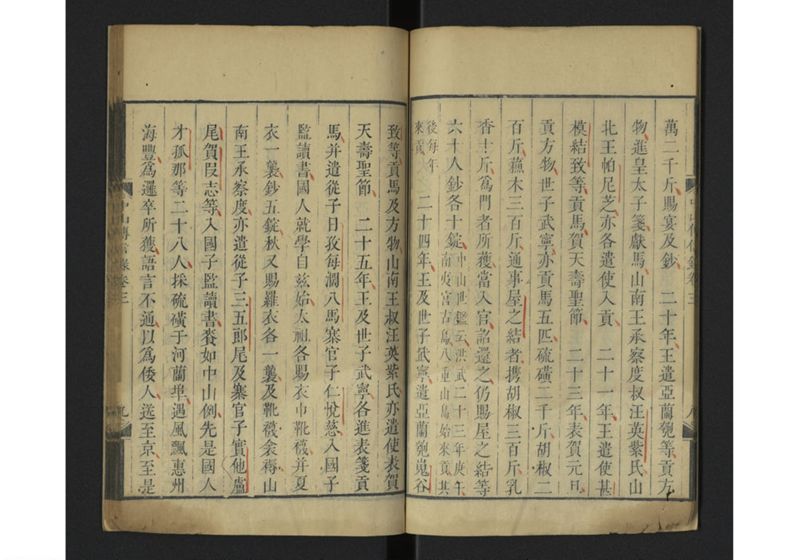 萬二千斤賜宴及鈔　二十年王遣亞蘭匏等貢方
物進皇太子箋獻馬山南王承察度叔汪英紫氏山
北王帕尼芝亦各遣使入貢　二十一年王遣使甚
模結致等貢馬賀天壽聖節　二十三年表賀元旦
貢方物世子武寧亦貢馬五匹硫磺二千斤胡椒二
百斤蘇木三百斤通事屋之結者攜胡椒三百斤乳
香十斤爲門者所獲當入官詔還之仍賜屋之結等
六十人鈔各十錠中山世鑑云洪武二十三年庚午
南夷宮古島八重山島始來貢其
後每年
來貢　二十四年王及世子武寧遣亞蘭匏嵬谷
致等貢馬及方物山南王叔汪英紫氏亦遣使表賀
天壽聖節　二十五年王及世子武寧各進表箋貢
馬并遣從子日孜每濶八馬寨官子仁悅慈入國子
監讀書國人就學自玆始太祖各賜衣巾靴襪并夏
衣一襲鈔五錠秋又賜羅衣各一襲及靴襪衾褥山
南王承察度亦遣從子三五郎尾及寨官子實他盧
尾賀叚志等入國子監讀書賚如中山例先是國人
才孤那等二十八人採硫磺于河蘭埠遇風飄惠州
海豐爲邏卒所獲語言不通以爲倭人送至京至是
中山傳信錄卷三
九